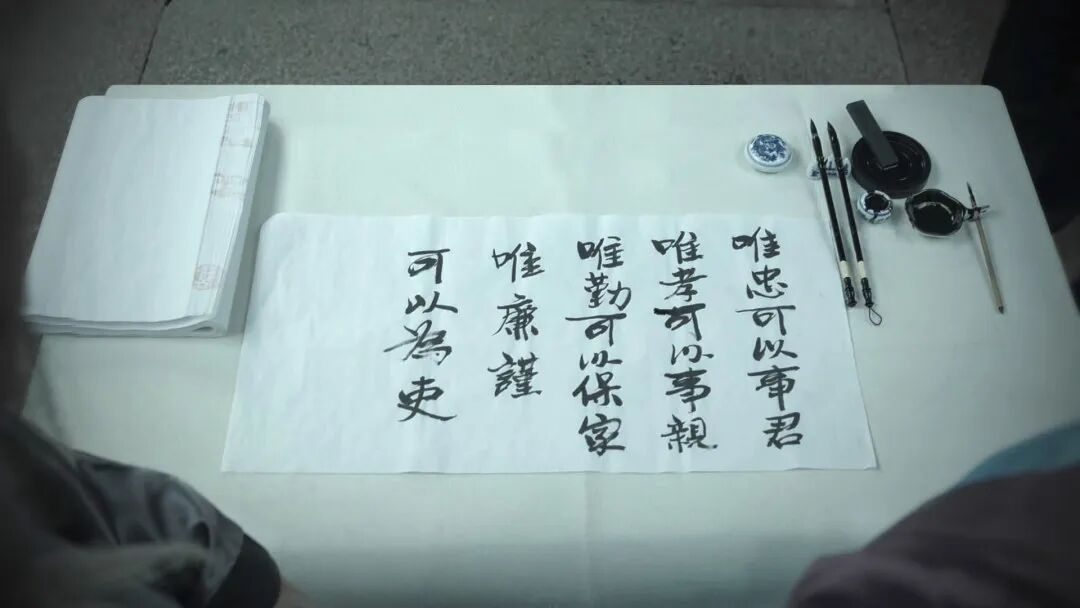 唯忠可以事君
唯孝可以事親
唯勤可以保家
唯廉謹
可以為吏